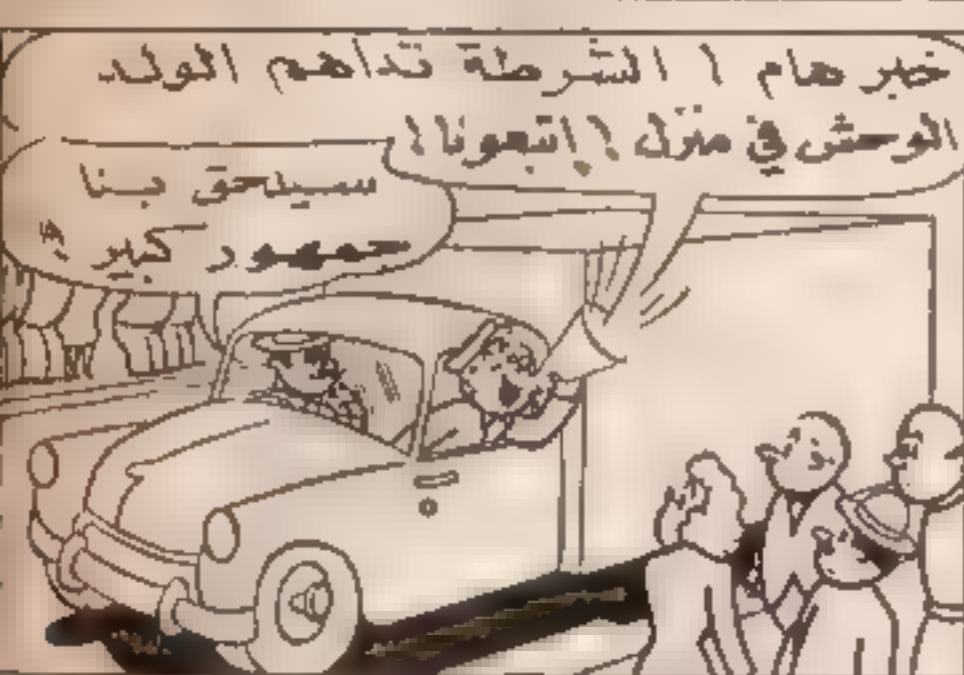 خبر هام ! الشرطة تداهم الولد
الوحش في منزل ! إتبعونا !
سيلحق بنا
جمهور كبير !!